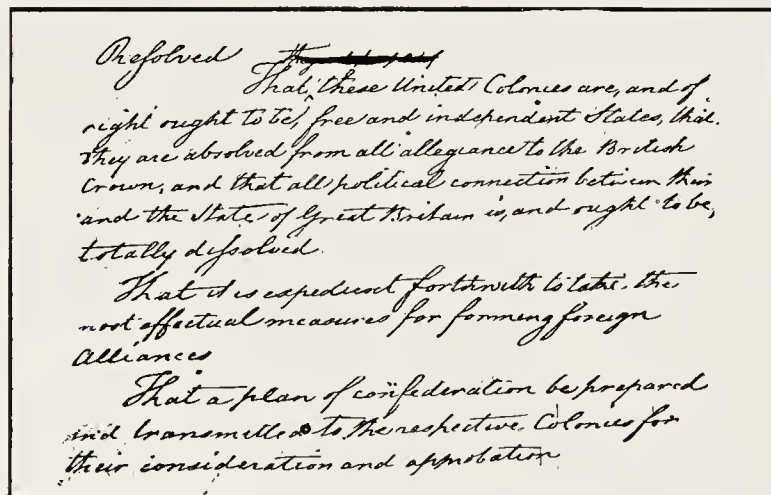 Resolved
That these United Colonies are, and of
right ought to be, free and independent States, that
they are absolved from all allegiance to the British
Crown, and that all political connection between them
and the State of Great Britain is, and ought to be,
totally dissolved.
That it is expedient forthwith to take the
most effectual measures for forming foreign
Alliances
That a plan of confederation be prepared
and transmitted to the respective Colonies for
their consideration and approbation